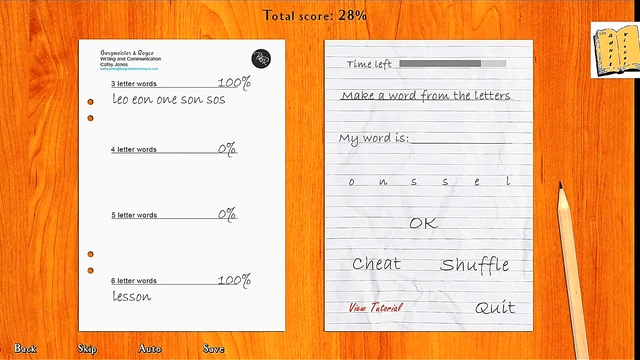 Total score: 28%
Bangmeister & Royce
Writing and Communication
Cathy Jones
3 letter words 100%
leo eon one son sos
4 letter words 0%
5 letter words 0%
6 letter words 100%
lesson
Time left
Make a word from the letters
My word is:
o n s s e l
OK
Cheat Shuffle
View Tutorial Quit
Back Skip Auto Save